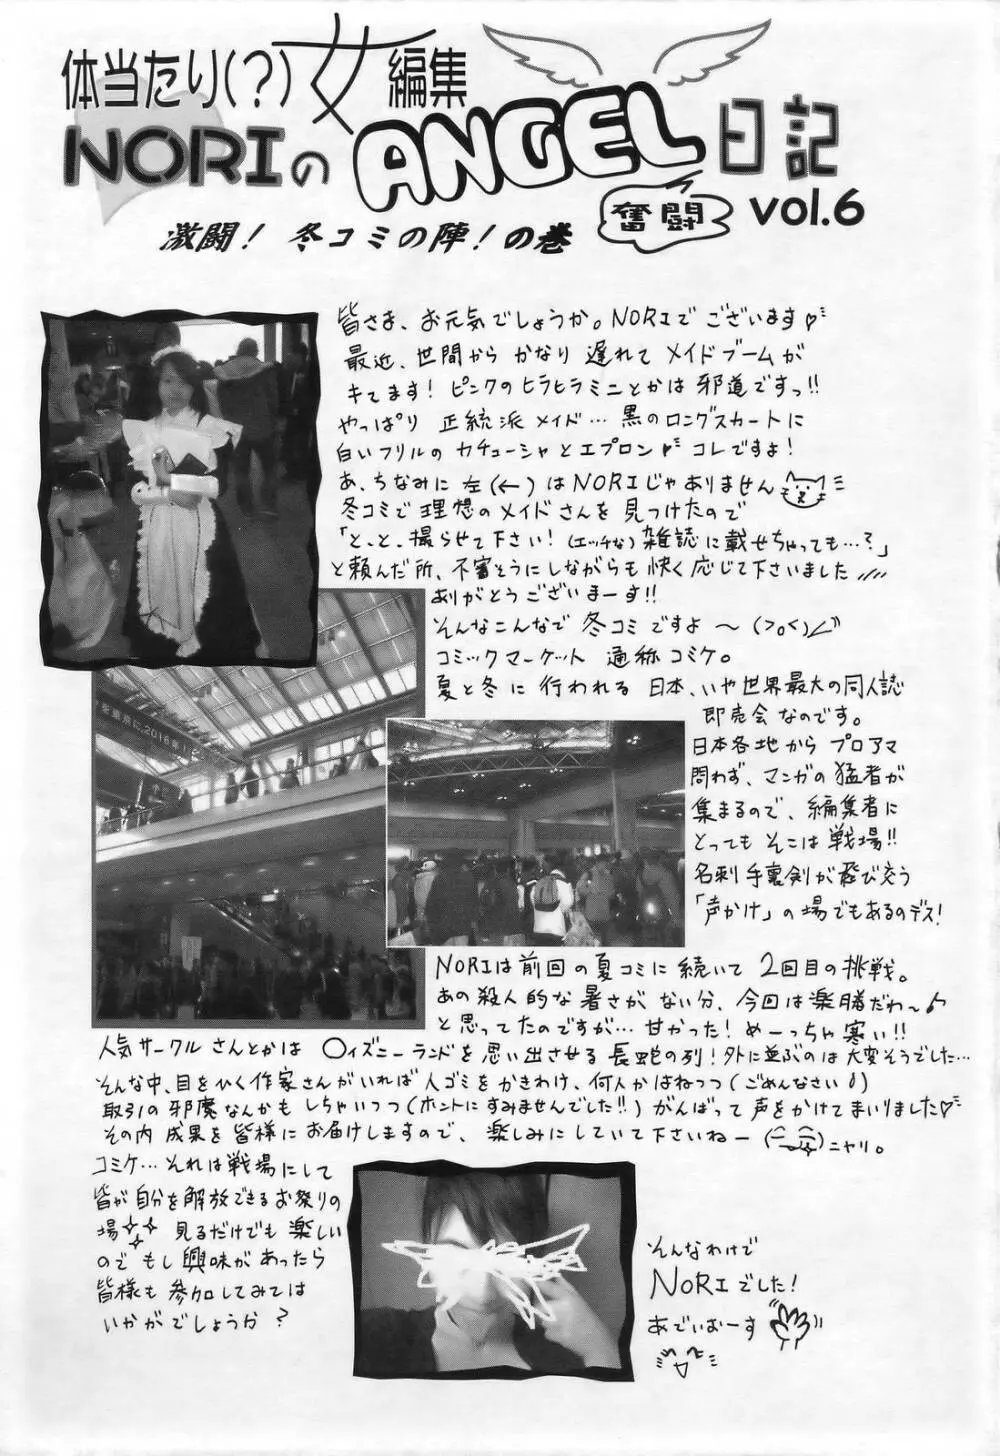 体当たり(?)女編集
NORIのANGEL日記
奮闘
vol.6
激闘! 冬コミの陣!の巻
皆さま、お元気でしょうか。NORIでございます♡
最近、世間から かなり 遅れて メイドブームが
キてます! ピンクのヒラヒラミニとかは 邪道ですっ!!
やっぱり 正統派メイド… 黒のロングスカートに
白いフリルの カチューシャとエプロン♡ コレですよ!
あ、ちなみに 左(←)はNORIじゃありません
冬コミで 理想のメイドさんを 見つけたので
「と、と、撮らせて下さい! (エッチな) 雑誌に載せちゃっても…?」
と頼んだ所、不審そうにしながらも 快く応じて下さいました
ありがとうございまーす!!
そんなこんなで 冬コミですよ 〜 (>o<)
コミックマーケット 通称コミケ。
夏と冬に 行われる 日本、いや世界最大の同人誌
即売会なのです。
日本各地から プロアマ
問わず、マンガの猛者が
集まるので、編集者に
とっても そこは戦場!!
名刺手裏剣が飛び交う
「声かけ」の場でもあるのデス!
NORIは前回の夏コミに続いて 2回目の挑戦。
あの殺人的な暑さがない分、今回は楽勝だわ〜♪
と思ってたのですが… 甘かった! めーっちゃ寒い!!
人気サークルさんとかは ○ィズニーランドを思い出させる 長蛇の列! 外に並ぶのは 大変そうでした…
そんな中、目をひく作家さんがいれば 人ゴミをかきわけ、何人かはねつつ (ごめんなさい)
取引の邪魔なんかも しちゃいつつ (ホントにすみませんでした!!) がんばって 声をかけてまいりました♡
その内 成果を皆様にお届けしますので、楽しみにしていて下さいねー ニヤリ。
コミケ… それは戦場にして
皆が自分を解放できるお祭りの
場 見るだけでも 楽しい
ので もし興味があったら
皆様も 参加してみては
いかがでしょうか?
そんなわけで
NORIでした!
あでぃおーす